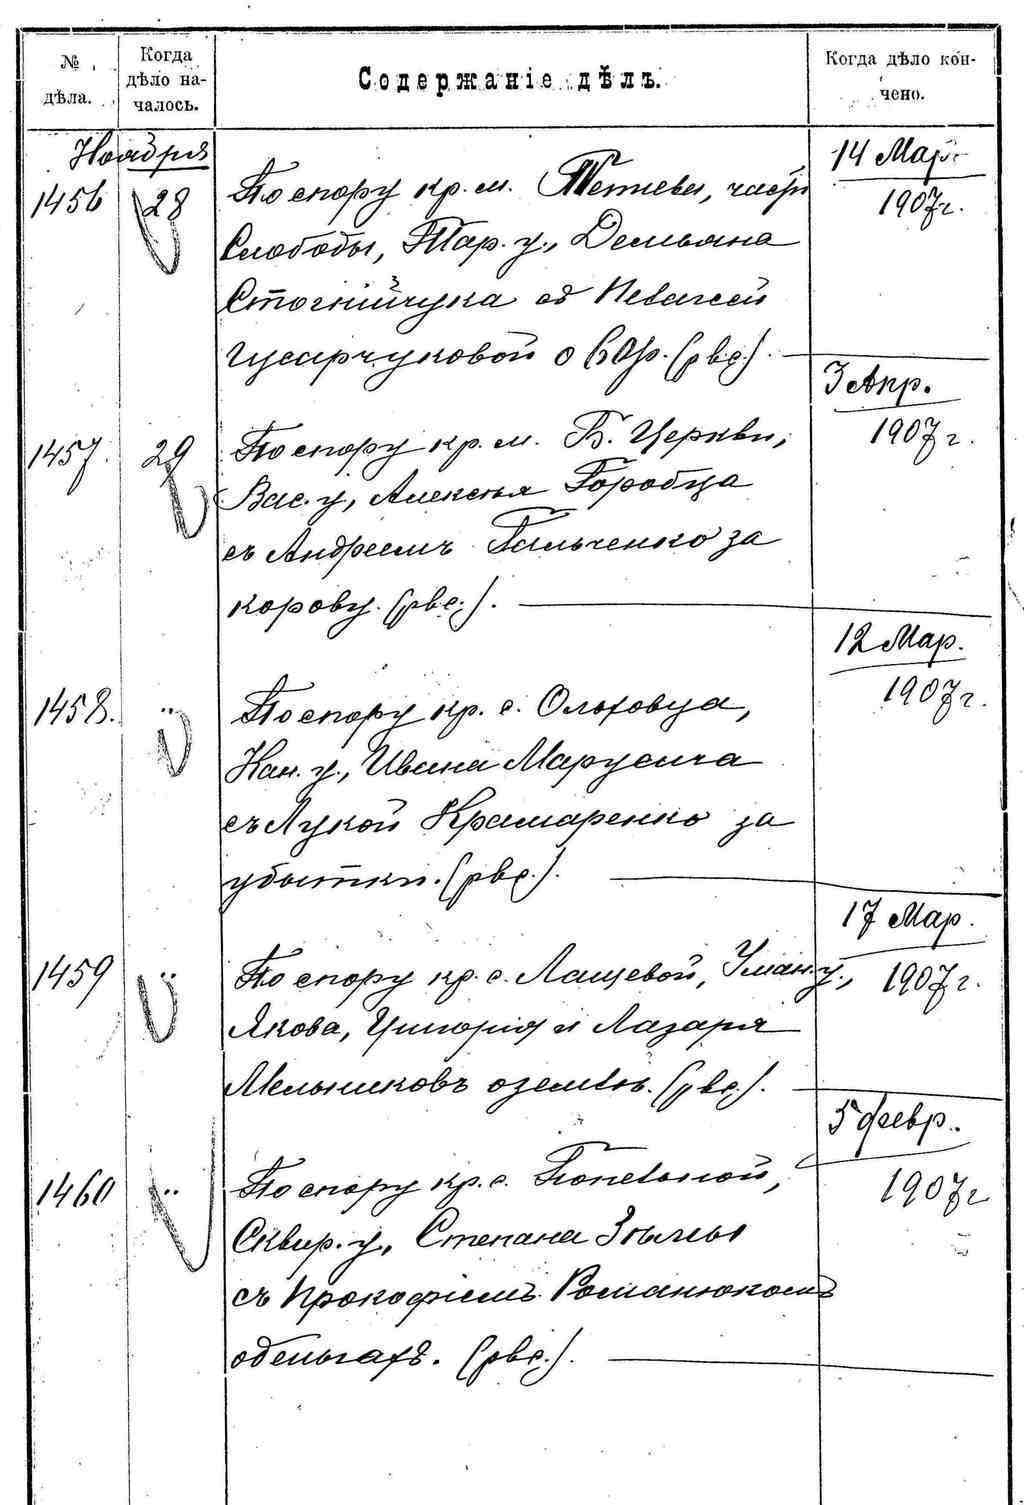 № дѣла.
Когда дѣло на-
чалось.
Содержаніе дѣлъ.
Когда дѣло кон-
чено.
Ноября
1456
28
По спору кр. м. Тетіева, части
Слободы, Тар. у., Демьяна
Стогнійчука съ
о (рѣс.).
14 Мар.
1907 г.
1457.
29
По спору кр. м. Б. Церкви,
Вас. у, Алексѣя Горобца
съ Андреемъ Гальченко за
корову. (рѣс.).
3 Апр.
1907 г.
1458.
"
По спору кр. с. Ольховца,
Ивана Марусича
съ Лукой Крамаренко за
убытки. (рѣс.).
12 Мар.
1907 г.
1459
"
По спору кр. с. Лащевой, Уман. у.,
Якова, Григорія и Лазаря
Мельниковъ о землѣ. (рѣс.).
17 Мар.
1907 г.
1460
"
По спору кр. с. Попельной,
Сквир. у., Степана
съ Прокофіемъ Романюкомъ
о деньгахъ. (рѣс.).
5 февр.
1907 г